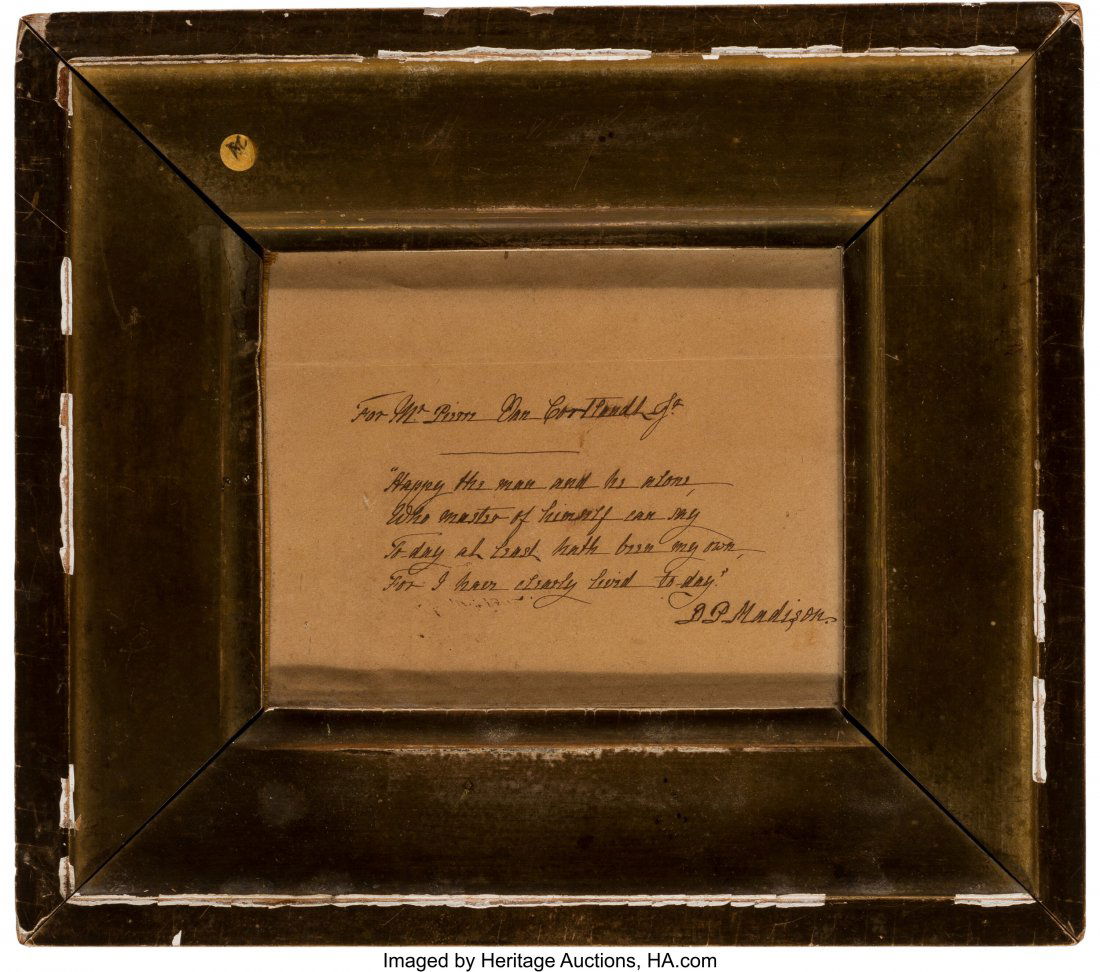 For Mr Pierre Van Cortlandt Jr
"Happy the man and he alone,
Who master of himself can say
To-day at least hath been my own,
For I have clearly livid to-day."
D P Madison.
Imaged by Heritage Auctions, HA.com